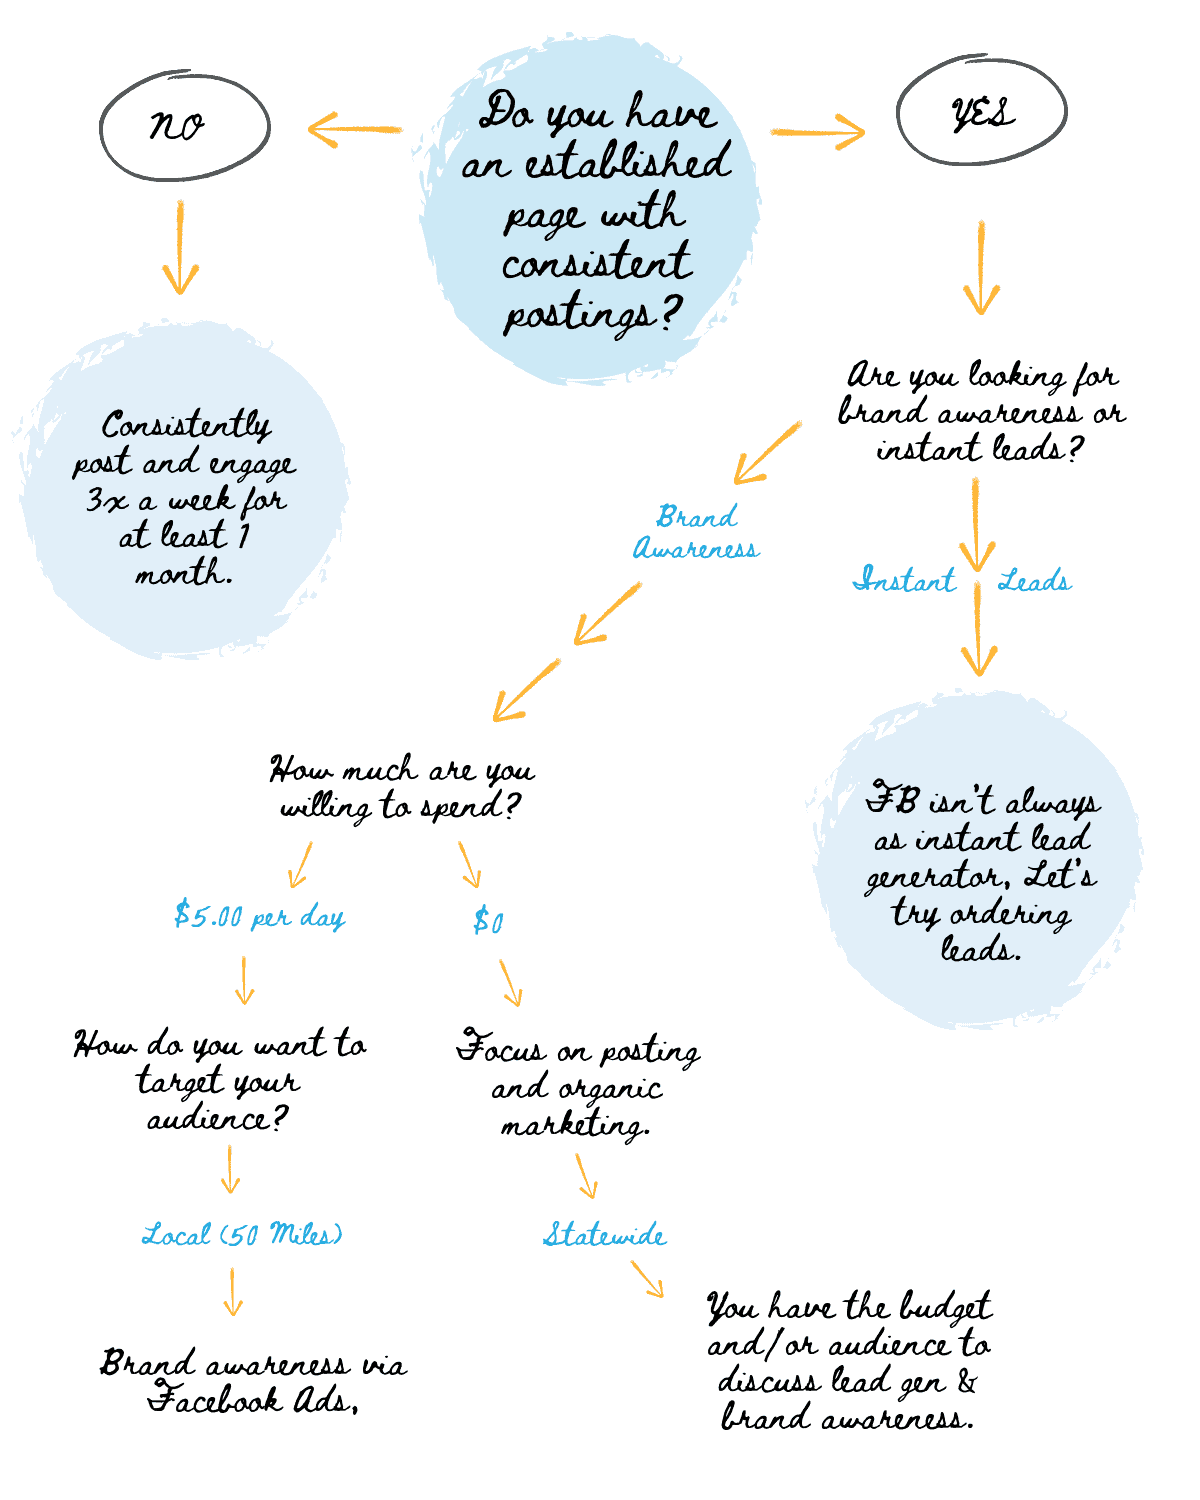 Do you have
an established
page with
consistent
postings?
NO
YES
Consistently
post and engage
3x a week for
at least 1
month.
Are you looking for
brand awareness or
instant leads?
Brand
Awareness
Instant Leads
FB isn't always
as instant lead
generator, Let's
try ordering
leads.
How much are you
willing to spend?
$5.00 per day
$0
How do you want to
target your
audience?
Focus on posting
and organic
marketing.
Local (50 Miles)
Statewide
Brand awareness via
Facebook Ads,
You have the budget
and/or audience to
discuss lead gen &
brand awareness.